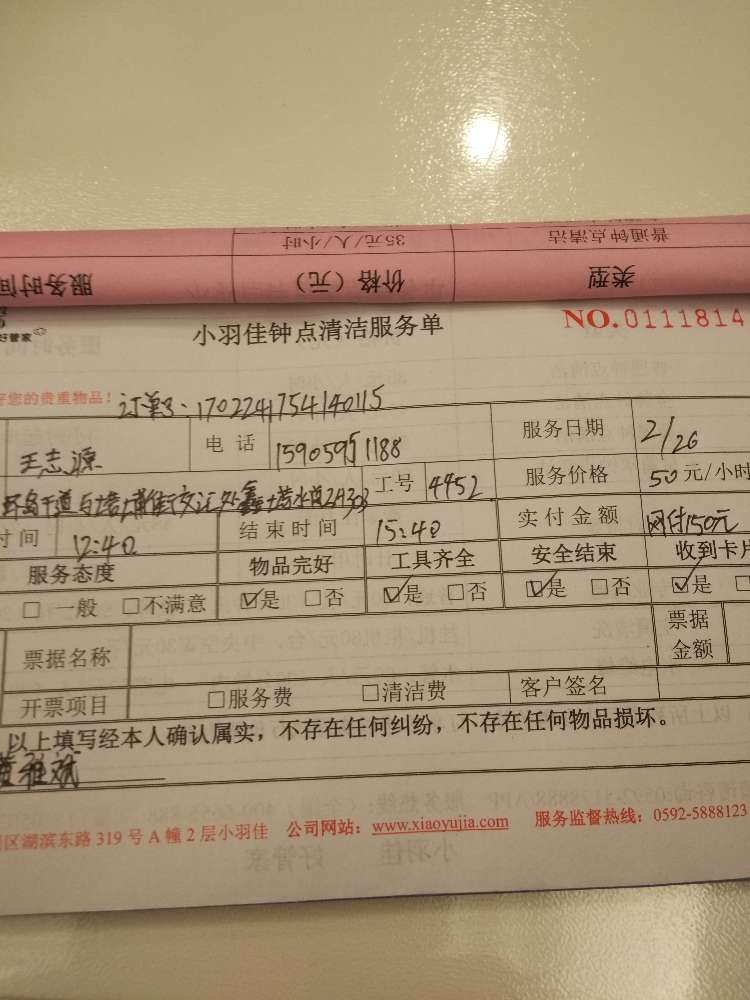 普通钟点清洁 35元/人/小时
类型 价格（元） 服务时间
好管家
小羽佳钟点清洁服务单 NO.0111814
好您的贵重物品！ 订单号：1702241754140115
王志源 电话 服务日期 2/26
工号 4452 服务价格 50元/小时
时间 12:40 结束时间 15:40 实付金额 网付150元
服务态度 物品完好 工具齐全 安全结束 收到卡片
□一般 □不满意 ☑是 □否 ☑是 □否 ☑是 □否 ☑是
票据名称 票据金额
开票项目 □服务费 □清洁费 客户签名
以上填写经本人确认属实，不存在任何纠纷，不存在任何物品损坏。
区湖滨东路319号A幢2层小羽佳 公司网站：www.xiaoyujia.com 服务监督热线：0592-5888123